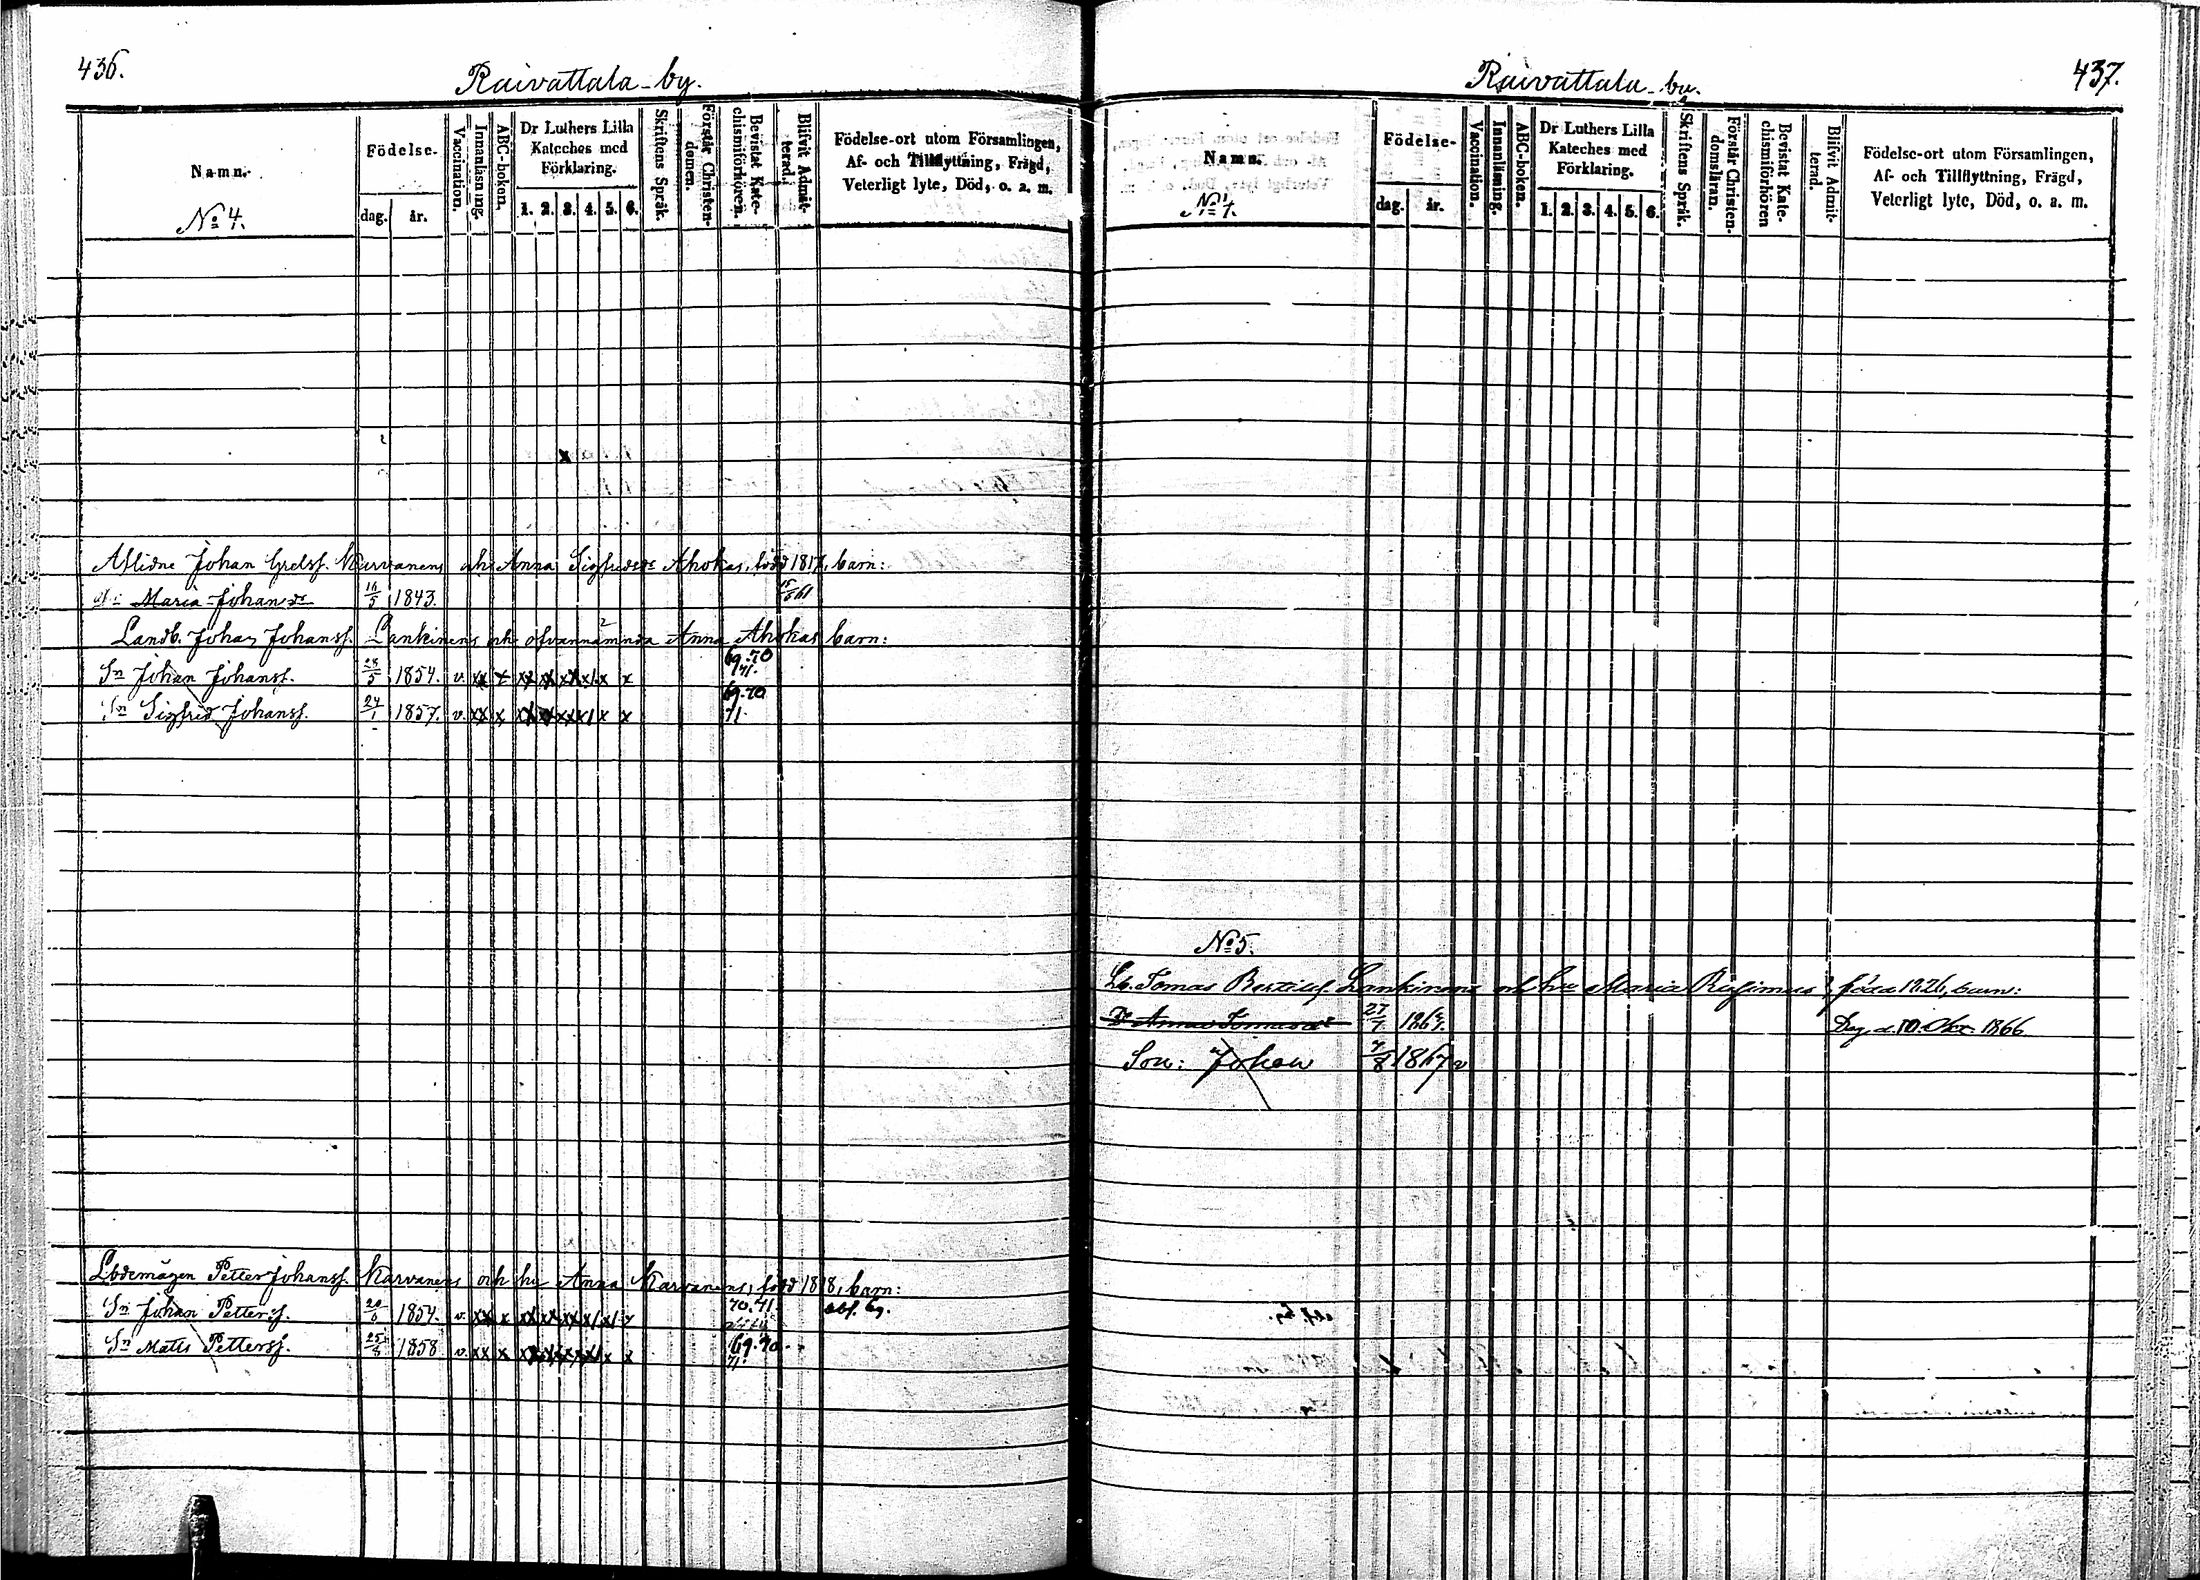 436.
Raivattala by.
Namn.
Födelse-
Vaccination.
Innanläsning.
ABC-boken.
Dr Luthers Lilla Kateches med Förklaring.
Skriftens Språk.
Förstår Christendomen.
Bevistat Katechismiförhören.
Blifvit Admitterad.
Födelse-ort utom Församlingen, Af- och Tillflyttning, Frägd, Veterligt lyte, Död, o. a. m.
No 4.
dag. år. 1. 2. 3. 4. 5. 6.
Aflidne Johan Grelsf. Karvanens och Anna Sigfredsdr Ahokas, född 1817, barn:
Maria Johansdr 16/5 1843.
Landb. Johan Johansf. Lankinens och ofvannämnda Anna Ahokas barn:
69.70
Sn Johan Johansf. 28/5 1854. v. xx x xx xx xx x/ x x 71.
69.70
Sn Sigfrid Johansf. 24/1 1857. v. xx x xx xx xx x/ x x 71.
Petter Johansf. Karvanens och hu Anna Karvanens, född 1818, barn:
Sn Johan Pettersf. 20/6 1854. v. xx x xx xx xx x/ x/ 70.71
Sn Matts Pettersf. 25/8 1858 v. xx x x x 69.70
71.
437.
Raivattala by.
Namn.
Födelse-
Vaccination.
Innanläsning.
ABC-boken.
Dr Luthers Lilla Kateches med Förklaring.
Skriftens Språk.
Förstår Christendomsläran.
Bevistat Katechismiförhören
Blifvit Admitterad.
Födelse-ort utom Församlingen, Af- och Tillflyttning, Frägd, Veterligt lyte, Död, o. a. m.
No 4.
dag. år. 1. 2. 3. 4. 5. 6.
No 5.
Lb. Tomas Bertilsf. Lankinens och hu Maria född 1826, barn:
Dr Anna Tomasdr 27/7 Dog d. 10. 1866
Son: Johan 7/8 1867 v